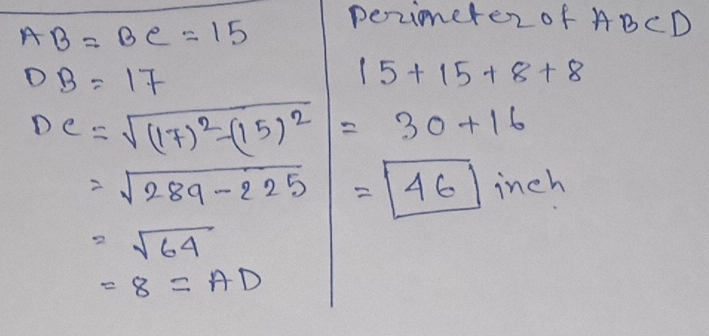 AB = BC = 15
DB = 17
DC = √(17)²-(15)²
= √289-225
= √64
= 8 = AD
Perimeter of ABCD
15+15+8+8
= 30+16
= 46 inch